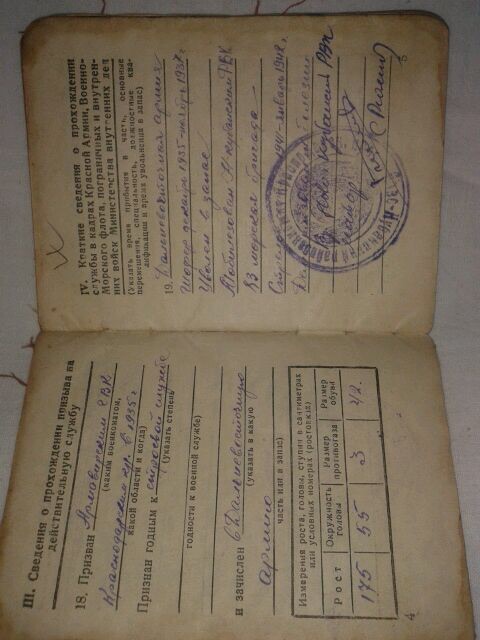 III. Сведения о прохождении призыва на
действительную службу
18. Призван Армавирским РВК
(каким военкоматом,
Краснодарский кр. в 1935 г
какой области и когда)
Признан годным к строевой службе
(указать степень
годности к военной службе)
и зачислен в Дальневосточную
(указать в какую
армию
часть или в запас)
Измерения роста, головы, ступни в сантиметрах
или условных номерах (ростовках)
Рост
Окружность
головы
Размер
противогаза
Размер
обуви
175 55 3 42.
4
IV. Краткие сведения о прохождении
службы в кадрах Красной Армии, Военно-
Морского флота, пограничных и внутрен-
них войск Министерства внутренних дел
(Указать время прибытия в часть, основные
перемещения, специальность, должностные ква-
лификации и время увольнения в запас)
19. Дальневосточная армия
шофер декабрь 1935-ноябрь 1937 г.
Уволен в запас
Мобилизован Нкубанский РВК
83 морская бригада —
1942 г.
РВК
майор
5